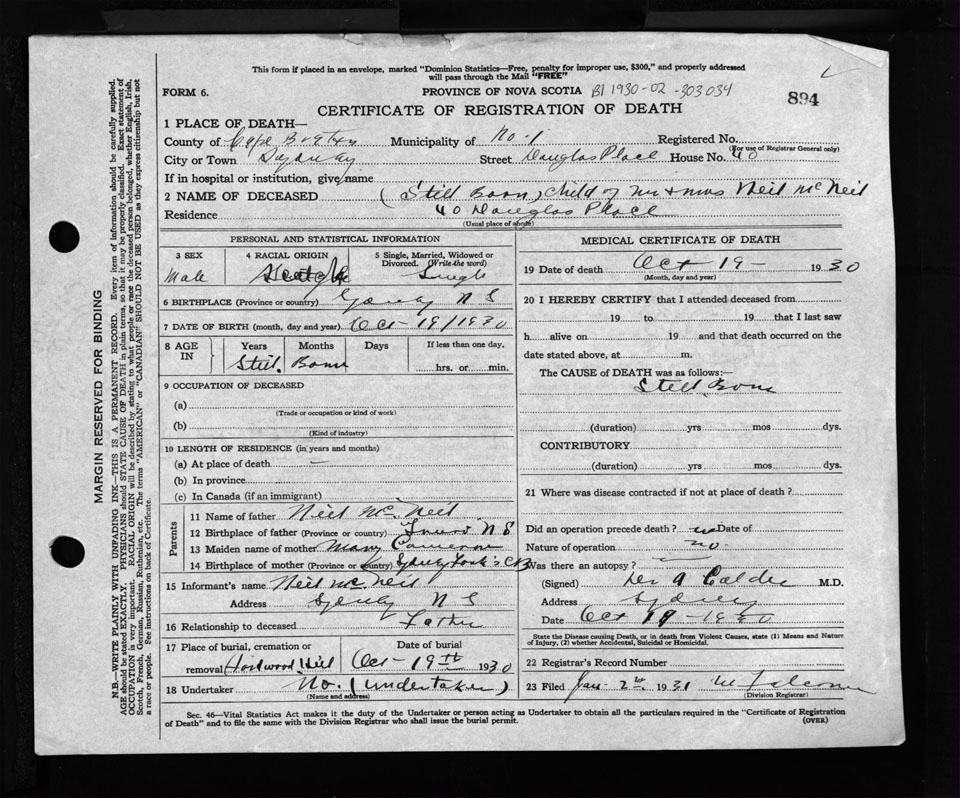 This form if placed in an envelope, marked "Dominion Statistics—Free, penalty for improper use, $300," and properly addressed
will pass through the Mail "FREE"
FORM 6. PROVINCE OF NOVA SCOTIA B1 1930-02-303034
894
CERTIFICATE OF REGISTRATION OF DEATH
1 PLACE OF DEATH—
County of Cape Breton Municipality of No-1 Registered No.
(For use of Registrar General only)
City or Town Sydney Street Douglas Place House No. 40
If in hospital or institution, give name
2 NAME OF DECEASED (Still Born) Child of Mr & Mrs Neil McNeil
Residence 40 Douglas Place
(Usual place of abode)
PERSONAL AND STATISTICAL INFORMATION
3 SEX 4 RACIAL ORIGIN 5 Single, Married, Widowed or
Divorced. (Write the word)
Male Scotch Single
6 BIRTHPLACE (Province or country) Sydney N S
7 DATE OF BIRTH (month, day and year) Oct 19/1930
8 AGE IN Years Months Days If less than one day,
Still Born hrs. or min.
9 OCCUPATION OF DECEASED
(a)
(Trade or occupation or kind of work)
(b)
(Kind of industry)
10 LENGTH OF RESIDENCE (in years and months)
(a) At place of death —
(b) In province
(c) In Canada (if an immigrant)
Parents
11 Name of father Neil McNeil
12 Birthplace of father (Province or country) N S
13 Maiden name of mother Mary Cameron
14 Birthplace of mother (Province or country) Sydney Forks C B
15 Informant's name Neil McNeil
Address Sydney N S
16 Relationship to deceased Father
17 Place of burial, cremation or
removal Hardwood Hill Oct-19th 1930
18 Undertaker No. (undertaker)
(Name and address)
MEDICAL CERTIFICATE OF DEATH
19 Date of death Oct 19- 1930
(Month, day and year)
20 I HEREBY CERTIFY that I attended deceased from
19 to 19 that I last saw
h alive on 19 and that death occurred on the
date stated above, at m.
The CAUSE OF DEATH was as follows:—
Still Born
(duration) yrs mos dys.
CONTRIBUTORY
(duration) yrs mos dys.
21 Where was disease contracted if not at place of death ?
Did an operation precede death ? no Date of
Nature of operation no
Was there an autopsy ?
(Signed) A Calder M.D.
Address Sydney
Date Oct 19-1930
State the Disease causing Death, or in death from Violent Causes, state (1) Means and Nature
of Injury, (2) whether Accidental, Suicidal or Homicidal.
22 Registrar's Record Number
23 Filed Jan 2nd 1931
(Division Registrar)
Sec. 46—Vital Statistics Act makes it the duty of the Undertaker or person acting as Undertaker to obtain all the particulars required in the "Certificate of Registration
of Death" and to file the same with the Division Registrar who shall issue the burial permit.
(OVER)
MARGIN RESERVED FOR BINDING
N.B.—WRITE PLAINLY WITH UNFADING INK—THIS IS A PERMANENT RECORD. Every item of information should be carefully supplied.
AGE should be stated EXACTLY. PHYSICIANS should STATE CAUSE OF DEATH in plain terms, so that it may be properly classified. Exact statement of
OCCUPATION is very important. RACIAL ORIGIN will be described by stating to what people or race the deceased person belonged, whether English, Irish,
Scotch, French, German, Russian, Ruthenian, etc. The terms "AMERICAN" or "CANADIAN" SHOULD NOT BE USED as they express citizenship but not
a race or people. See instructions on back of Certificate.